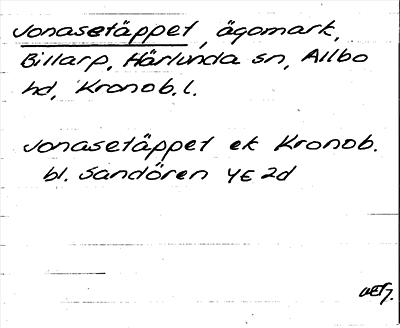 Jonasetäppet, ägomark,
Billarp, Härlunda sn, Allbo
hd, Kronob. l.
Jonasetäppet ek Kronob.
bl. Sandören 4E 2d